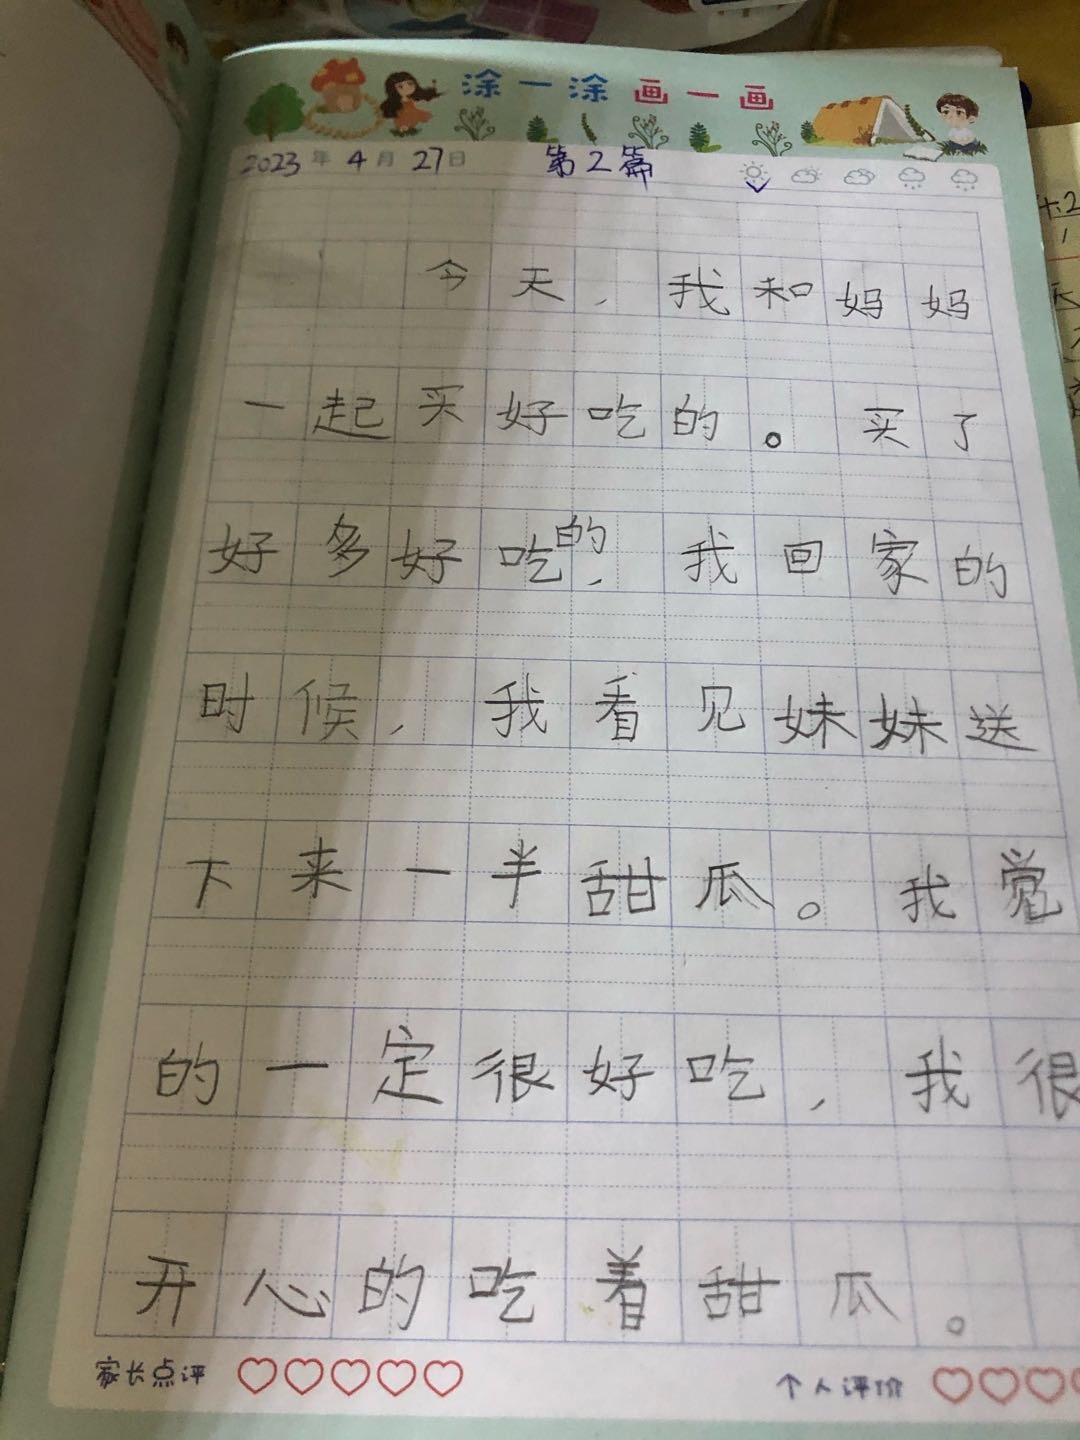 涂一涂 画一画
2023年4月27日 第2篇
今天，我和妈妈
一起买好吃的。买了
好多好吃的，我回家的
时候，我看见妹妹送
下来一半甜瓜。我觉
的一定很好吃，我很
开心的吃着甜瓜。
家长点评 个人评价